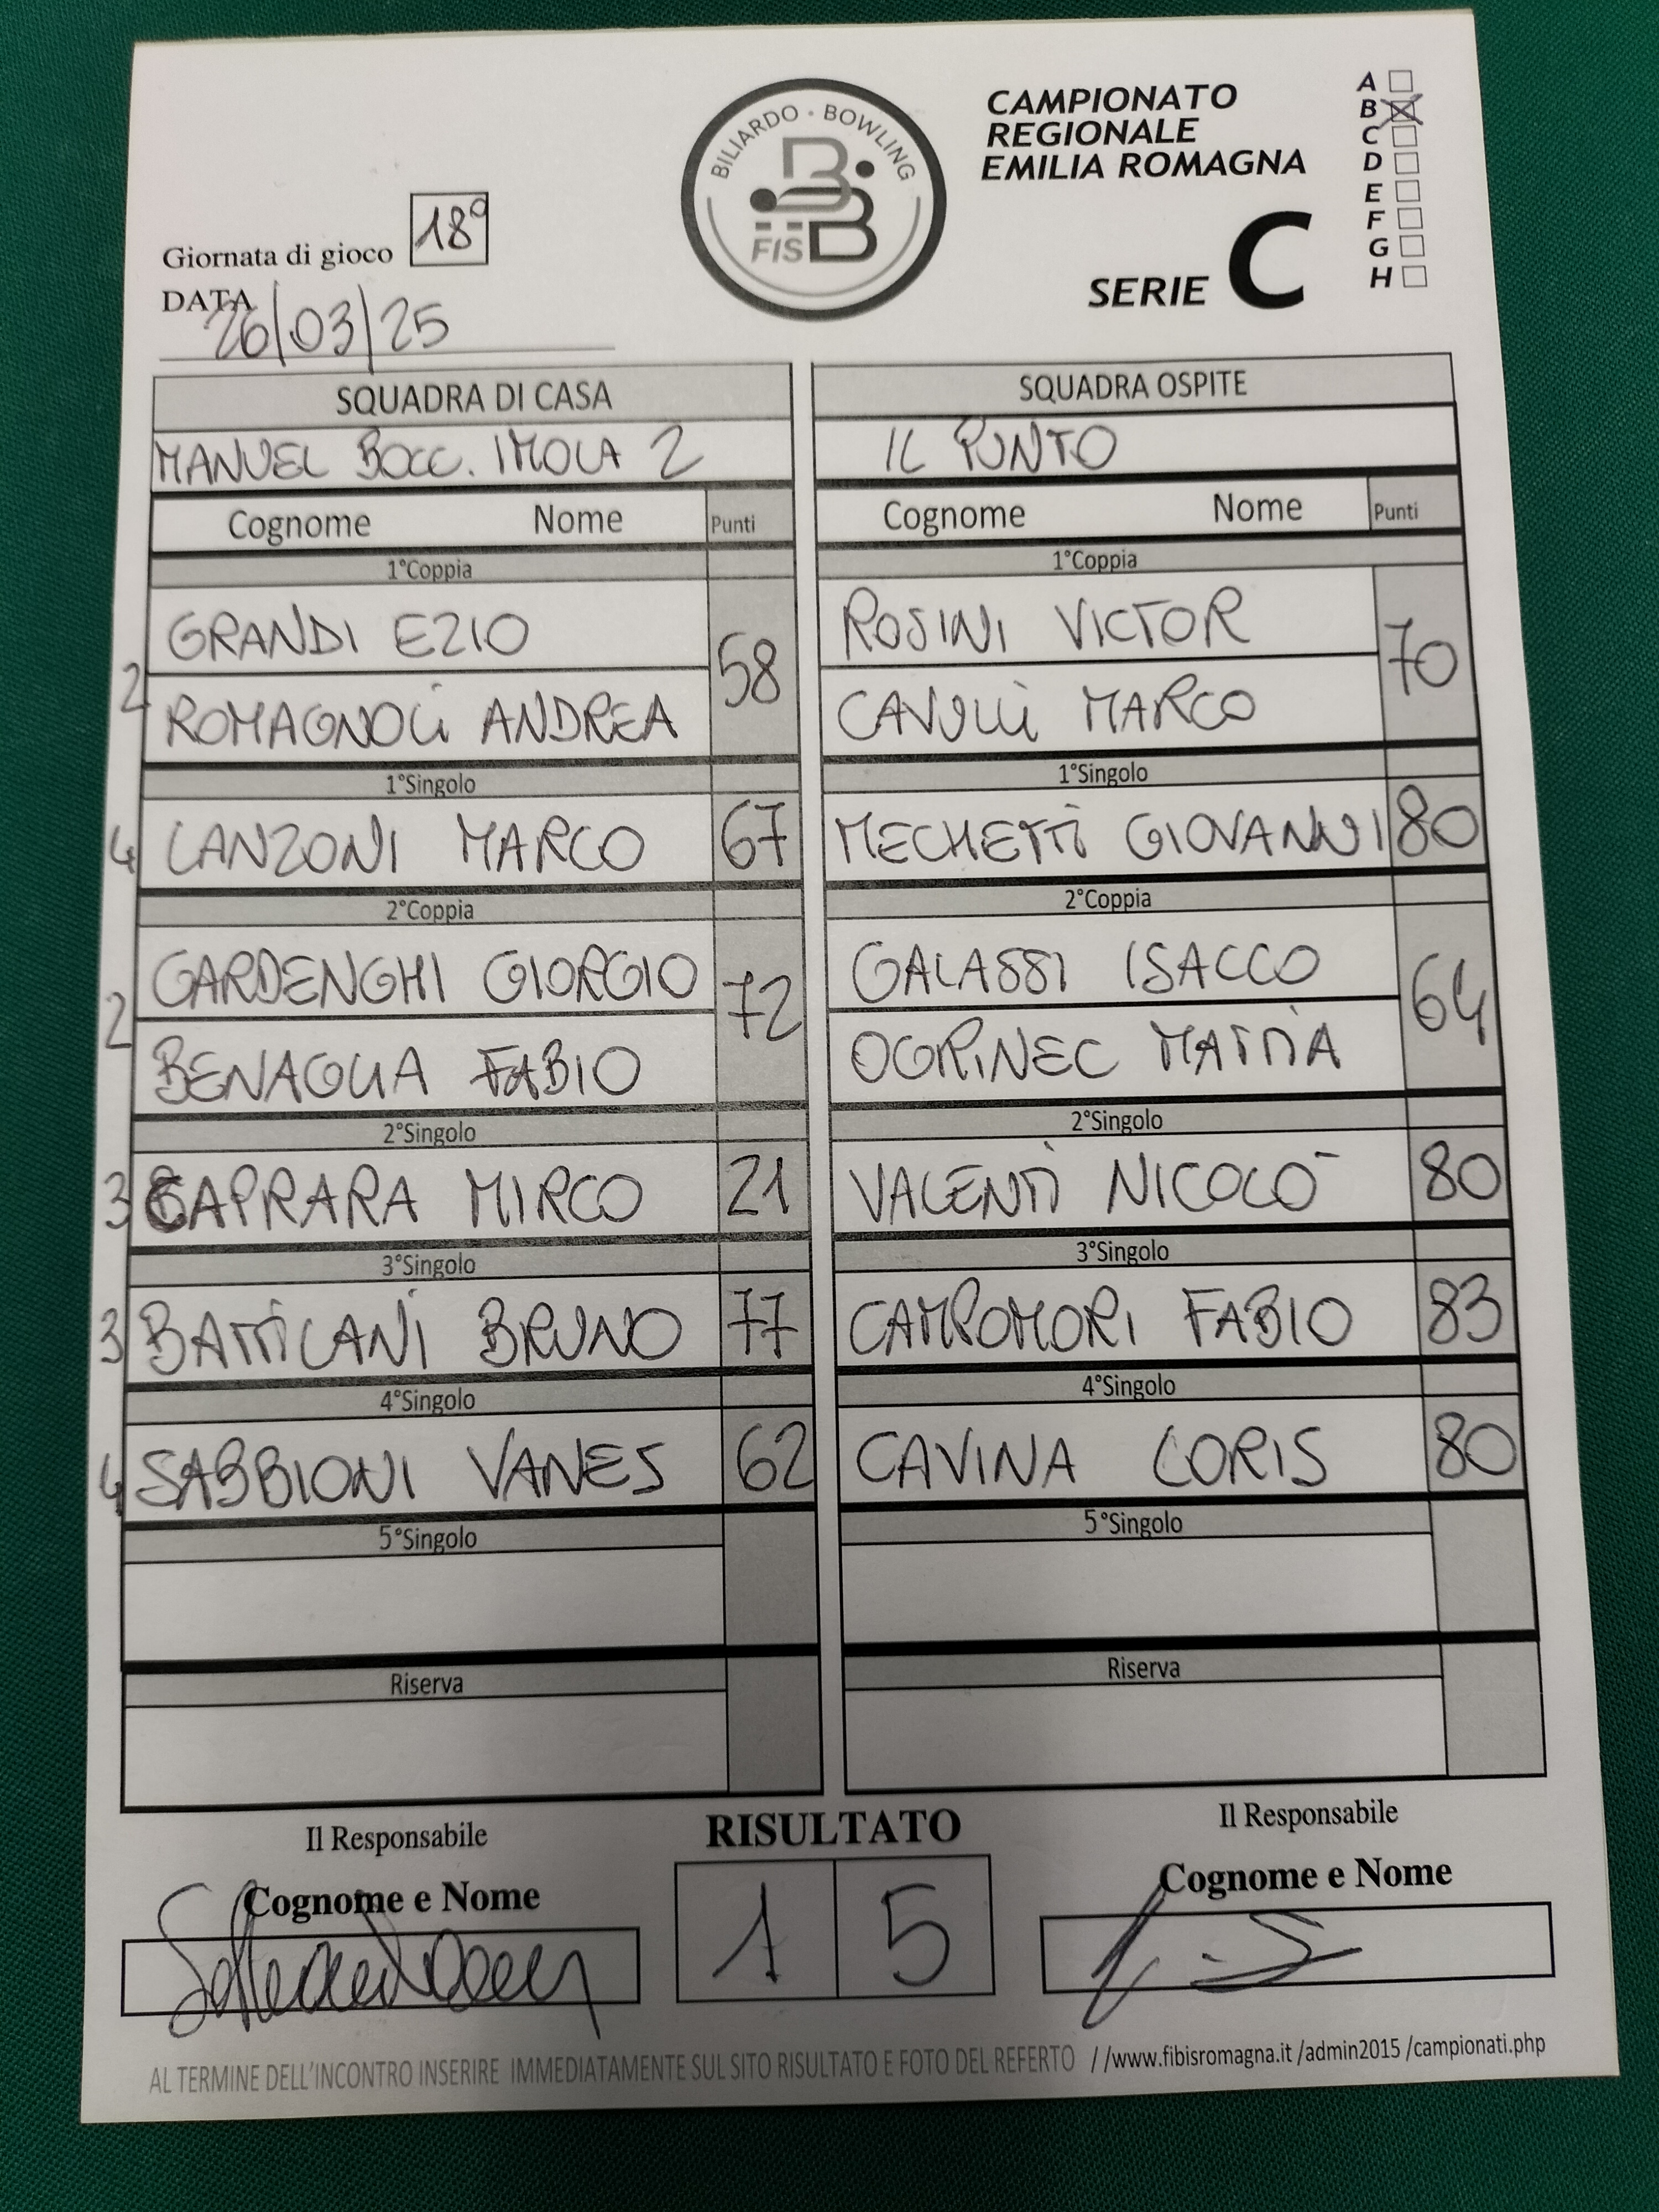 BILIARDO · BOWLING
FISBB
CAMPIONATO
REGIONALE
EMILIA ROMAGNA
SERIE C
A
B
C
D
E
F
G
H
Giornata di gioco 18°
DATA
26/03/25
SQUADRA DI CASA
MANUEL BOCC. IMOLA 2
Cognome Nome Punti
1°Coppia
2 GRANDI EZIO 58
ROMAGNOLI ANDREA
1°Singolo
4 LANZONI MARCO 67
2°Coppia
2 GARDENGHI GIORGIO 72
BENAGLIA FABIO
2°Singolo
3 CAPRARA MIRCO 21
3°Singolo
3 BATTILANI BRUNO 77
4°Singolo
4 SABBIONI VANES 62
5°Singolo
Riserva
SQUADRA OSPITE
IL PUNTO
Cognome Nome Punti
1°Coppia
ROSINI VICTOR 70
CAVULLI MARCO
1°Singolo
MECHETTI GIOVANNI 80
2°Coppia
GALASSI ISACCO 64
OGRINEC MATTIA
2°Singolo
VALENTI NICOLO' 80
3°Singolo
CAMPOMORI FABIO 83
4°Singolo
CAVINA LORIS 80
5°Singolo
Riserva
Il Responsabile
Cognome e Nome
RISULTATO
1 5
Il Responsabile
Cognome e Nome
AL TERMINE DELL'INCONTRO INSERIRE IMMEDIATAMENTE SUL SITO RISULTATO E FOTO DEL REFERTO //www.fibisromagna.it /admin2015 /campionati.php